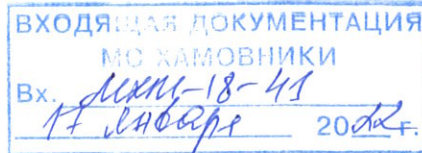 ВХОДЯЩАЯ ДОКУМЕНТАЦИЯ
МО ХАМОВНИКИ
Вх. МХМ-18-41
17 января 2022 г.